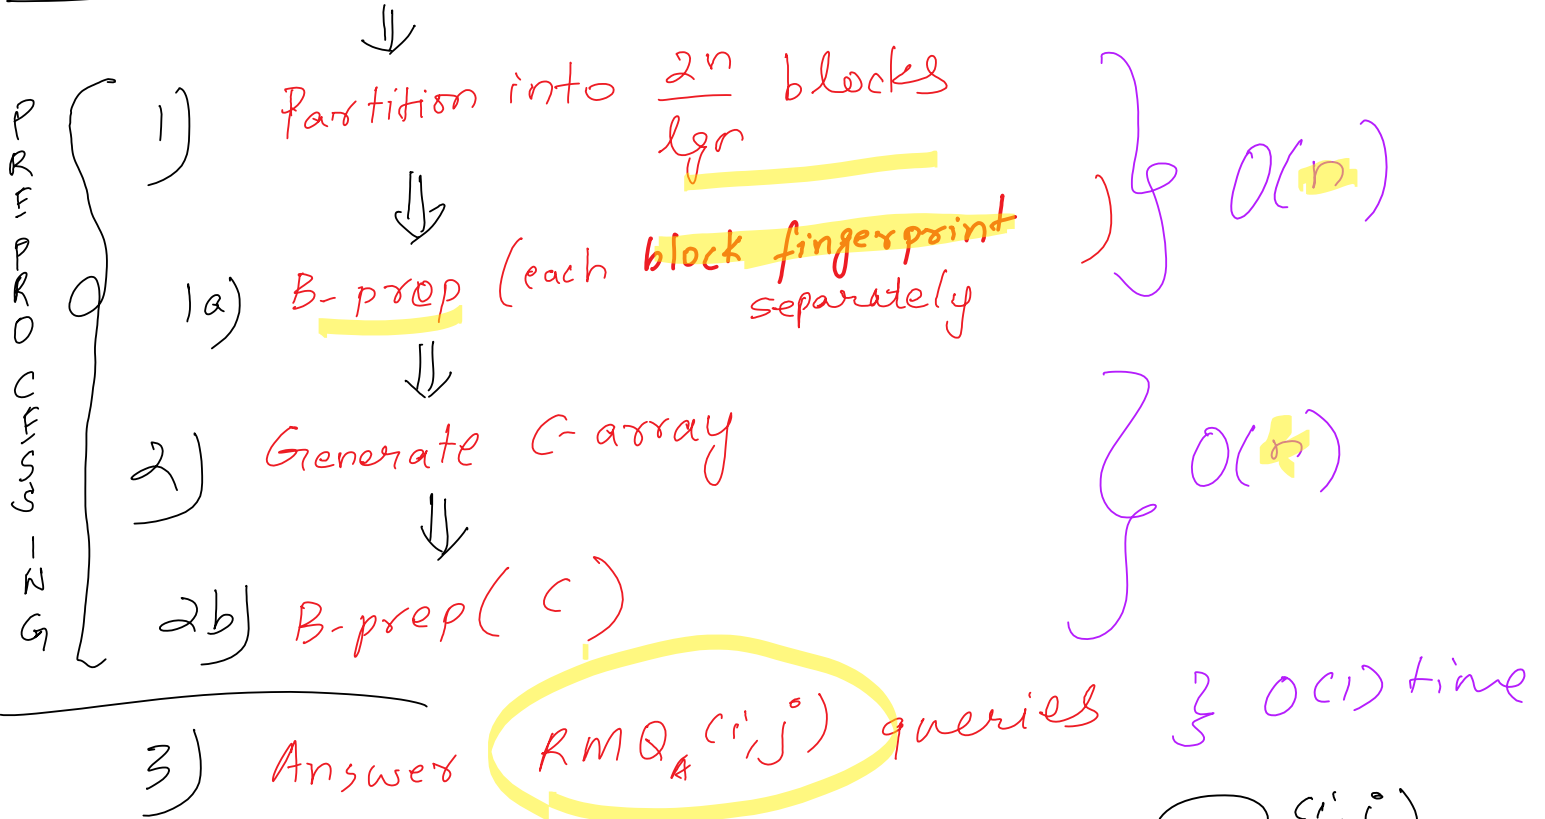 PREPROCESSING
1) Partition into 2n/lgn blocks
O(n)
1a) B-prop (each block fingerprint separately)
2) Generate C-array
O(n)
2b) B-prep(C)
3) Answer RMQ_A(i,j) queries } O(1) time
(i,j)